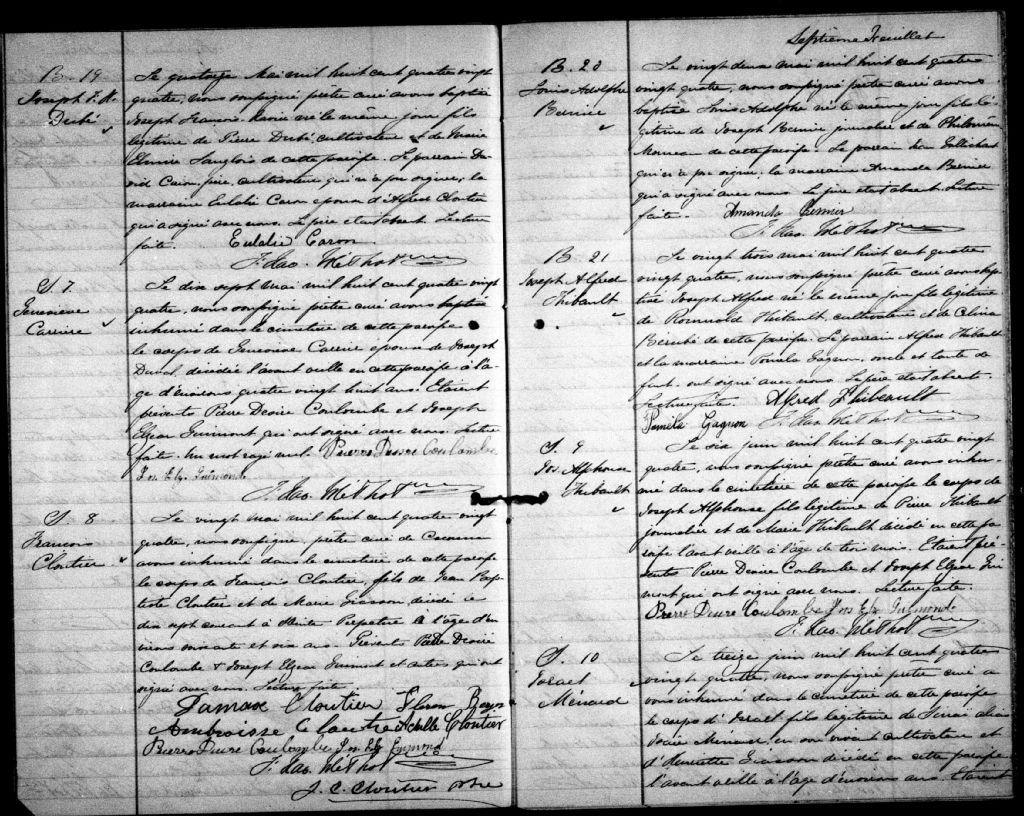 B. 19
Joseph F. X.
Dubé
Le quatorze Mai mil huit cent quatre vingt
quatre, nous soussigné prêtre curé avons baptisé
Joseph François-Xavier né le même jour fils
légitime de Pierre Dubé, cultivateur & de Marie
Elmire Langlois de cette paroisse. Le parrain Da
vid Caron, père, cultivateur qui n'a pu signer, la
marraine Eulalie Caron épouse d'Alfred Cloutier
qui a signé avec nous. Le père etait absent. Lecture
faite. Eulalie Caron
F. Xao. Méthot
S. 7
Genevieve
Carrier
Le dix sept mai mil huit cent quatre vingt
quatre, nous soussigné prêtre curé avons baptisé
inhumé dans le cimetière de cette paroisse
le corps de Genevieve Carrier épouse de Joseph
Duval décédée l'avant veille en cette paroisse à l'â-
ge d'environs quatre vingt huit ans. Etaient
présents Pierre Desire Coulombe et Joseph
Elzear Guimont qui ont signé avec nous. Lecture
faite. Un mot rayé nul. Pierre Desire Coulombe
Jos. Elz. Guimond
F. Xao. Méthot
S. 8
Francois
Cloutier
Le vingt mai mil huit cent quatre vingt
quatre, nous soussigné, prêtre curé de
avons inhumé dans le cimetière de cette paroisse
le corps de François Cloutier, fils de Jean Bap
tiste Cloutier et de Marie Giasson décédé le
dix sept courant à Sainte Perpetue à l'âge d'en
virons soixante et six ans. Présents Pierre Desire
Coulombe & Joseph Elzear Guimont et autres qui ont
signé avec nous. Lecture faite
Damase Cloutier
Ambroisse Cloutier Achille Cloutier
Pierre Desire Coulombe Jos. Elz Guimond
F. Xao. Méthot
J. C. Cloutier Ptre
Septième Feuillet
B. 20
Louis Adolphe
Bernier
Le vingt deux mai mil huit cent quatre
vingt quatre, nous soussigné prêtre curé avons
baptisé Louis Adolphe né le même jour fils lé
gitime de Joseph Bernier journalier et de Philomène
Morneau de cette paroisse. Le parrain
qui n'a pu signer, la marraine Amanda Bernier
qui a signé avec nous. Le père etait absent. Lecture
faite. Amanda Bernier
F. Xao. Méthot
B. 21
Joseph Alfred
Thibault
Le vingt trois mai mil huit cent quatre
vingt quatre, nous soussigné prêtre curé avons bap
tisé Joseph Alfred né le même jour fils légitime
de Romuald Thibault, cultivateur et de Célina
Bérubé de cette paroisse. Le parrain Alfred Thibault
et la marraine Pamela Gagnon, oncle et tante de
l'enfant ont signé avec nous. Le père etait absent.
Lecture faite. Alfred Thibeault
Pamila Gagnon F. Xao. Méthot
S. 9
Jos. Alphonse
Thibault
Le six juin mil huit cent quatre vingt
quatre, nous soussigné prêtre curé avons inhu-
mé dans le cimetière de cette paroisse le corps de
Joseph Alphonse fils légitime de Pierre Thibault
journalier et de Marie Thibault décédé en cette pa
roisse l'avant veille à l'âge de trois mois. Etaient pré-
sents Pierre Desire Coulombe et Joseph Elzear Gui
mont qui ont signé avec nous. Lecture faite.
Pierre Desire Coulombe Jos Elz Guimond
F. Xao. Méthot
S. 10
Israel
Ménard
Le treize juin mil huit cent quatre
vingt quatre, nous soussigné prêtre curé a
vons inhumé dans le cimetière de cette paroisse
le corps d'Israel fils légitime de
Ménard, en son vivant cultivateur et
d'Henriette Giasson décédé en cette paroisse
l'avant veille à l'âge d'environ ans. Etaient